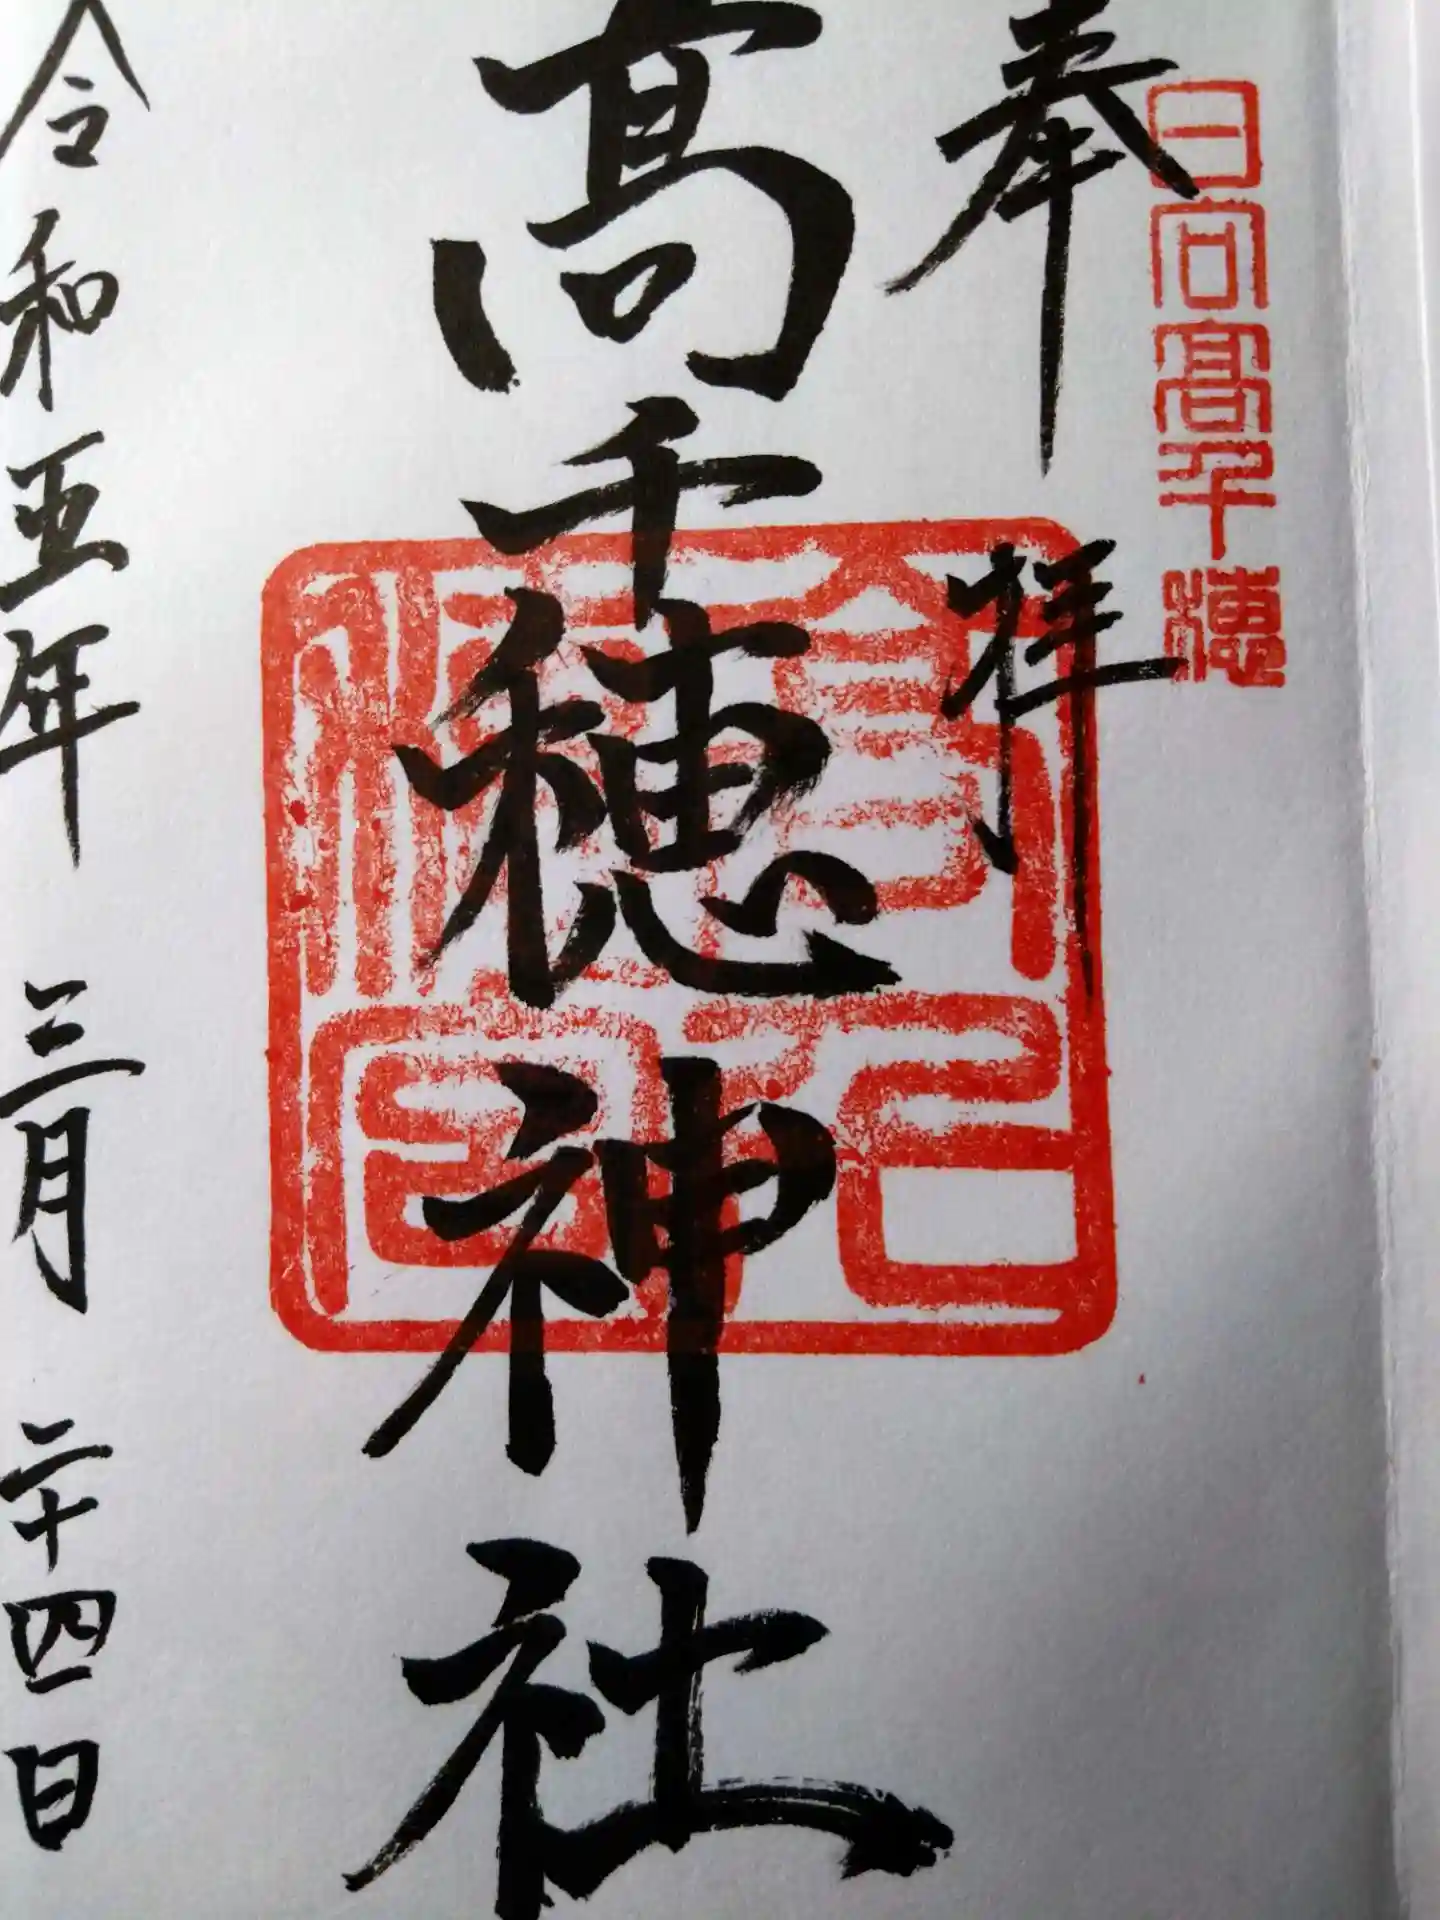 日向高千穂
奉拝
髙千穂神社
令和五年三月二十四日